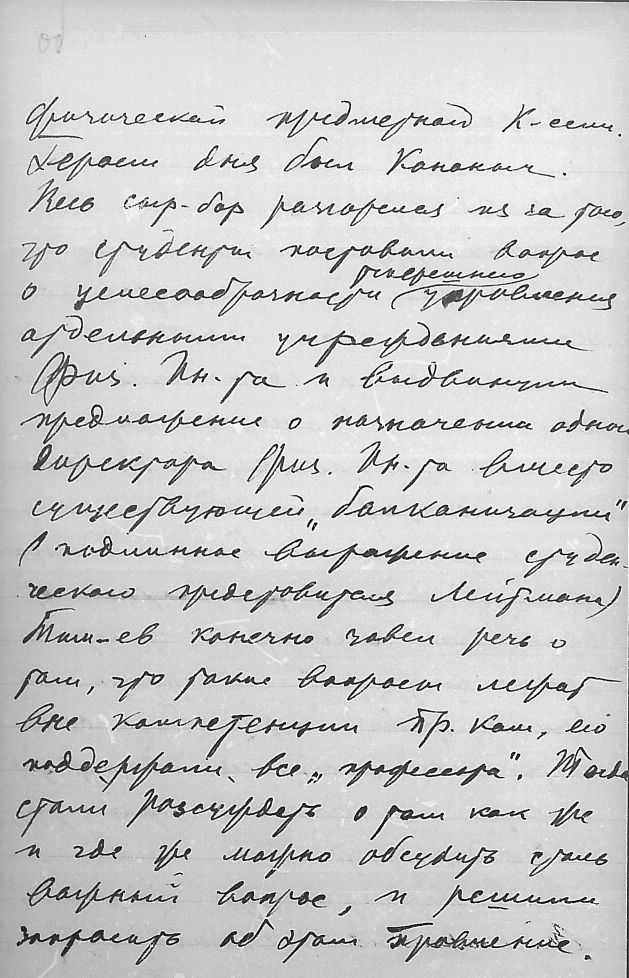 физической предметной К-сии.
Героем дня был Кананыч.
Весь сыр-бор разгорелся из за того,
что студенты поставили вопрос
о целесообразности теперешнего управления
отдельными учреждениями
Физ. Ин-та и выдвинули
предложение о назначении одного
Директора Физ. Ин-та вместо
существующей „балканизации"
(подлинное выражение студен-
ческого представителя Лейтмана)
Тим-ев конечно завел речь о
том, что такие вопросы лежат
вне компетенции пр. ком, его
поддержали все „профессора". Тогда
стали разсуждать о том как же
и где же можно обсудить столь
важный вопрос, и решили
запросить об этом правление.